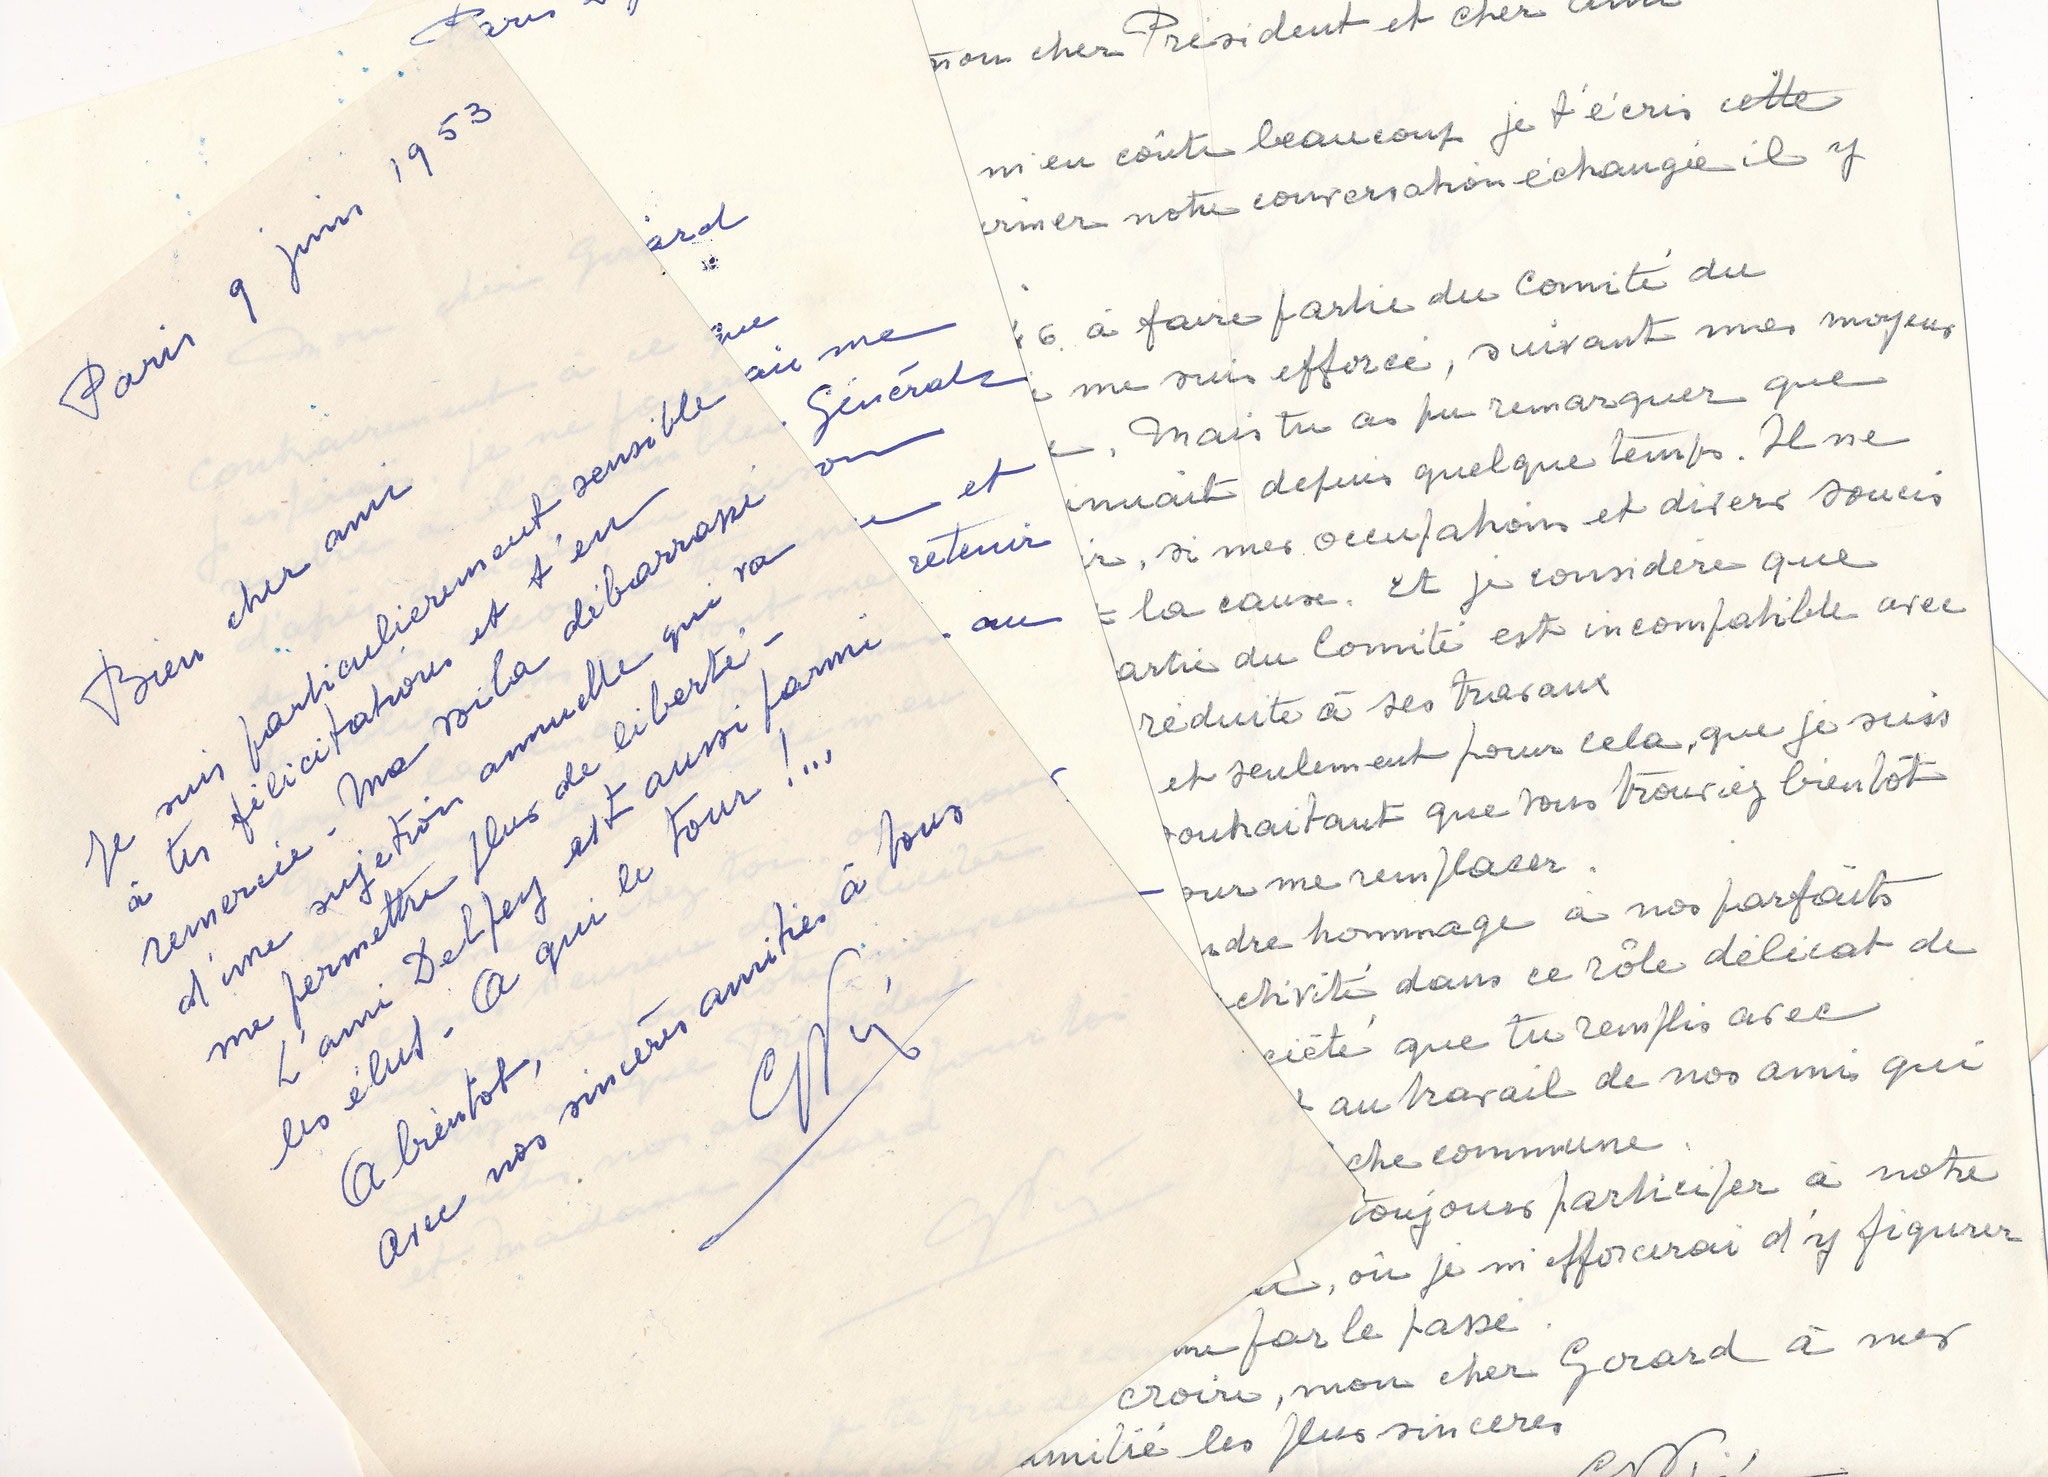 Paris 9 juin 1953
Bien cher ami
Je suis particulierement sensible
à tes félicitations et t'en
remercie - Ma voila débarrassé
d'une sujetion annuelle qui va
me permettre plus de liberté -
L'ami Delpey est aussi parmi
les élus - A qui le tour !...
A bientot,
avec nos sincères amitiés à tous
Paris
ard
que
ai me
Générale
on
et
retenir
au
mon cher Président et cher ami
m'en coûte beaucoup je t'écris cette
notre conversation échangée il y
à faire partie du Comité du
me suis efforcé, suivant mes moyens
. Mais tu as pu remarquer que
inuait depuis quelque temps. Il ne
ir, si mes occupations et divers soucis
la cause. Et je considère que
artie du Comité est incompatible avec
réduite à ses travaux
et seulement pour cela, que je suis
ouhaitant que vous trouviez bientôt
our me remplacer.
ndre hommage à nos parfaits
ctivité dans ce rôle délicat de
ciété que tu remplis avec
au travail de nos amis qui
che commune.
toujours participer à notre
, où je m'efforcerai d'y figurer
me par le passé.
croire, mon cher Gerard à mes
mitié les plus sinceres